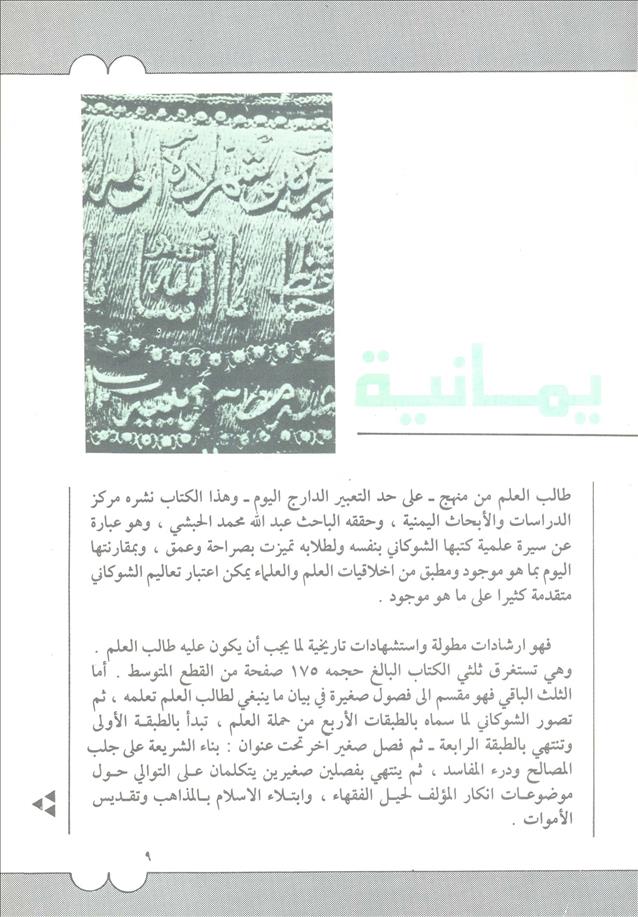 يمــانية
طالب العلم من منهج ـ على حد التعبير الدارج اليوم ـ وهذا الكتاب نشره مركز
الدراسات والأبحاث اليمنية ، وحققه الباحث عبد الله محمد الحبشي ، وهو عبارة
عن سيرة علمية كتبها الشوكاني بنفسه ولطلابه تميزت بصراحة وعمق ، وبمقارنتها
اليوم بما هو موجود ومطبق من اخلاقيات العلم والعلماء يمكن اعتبار تعاليم الشوكاني
متقدمة كثيرا على ما هو موجود .
فهو ارشادات مطولة واستشهادات تاريخية لما يجب أن يكون عليه طالب العلم .
وهي تستغرق ثلثي الكتاب البالغ حجمه ١٧٥ صفحة من القطع المتوسط . أما
الثلث الباقي فهو مقسم الى فصول صغيرة في بيان ما ينبغي لطالب العلم تعلمه ، ثم
تصور الشوكاني لما سماه بالطبقات الأربع من حملة العلم ، تبدأ بالطبقـة الأولى
وتنتهي بالطبقة الرابعة ـ ثم فصل صغير آخر تحت عنوان : بناء الشريعة على جلب
المصالح ودرء المفاسد ، ثم ينتهي بفصلين صغيرين يتكلمان علـى التوالي حـول
موضوعـات انكار المؤلف لحيـل الفقهاء ، وابتـلاء الاسلام بـالمذاهب وتقـديس
الأموات .
٩